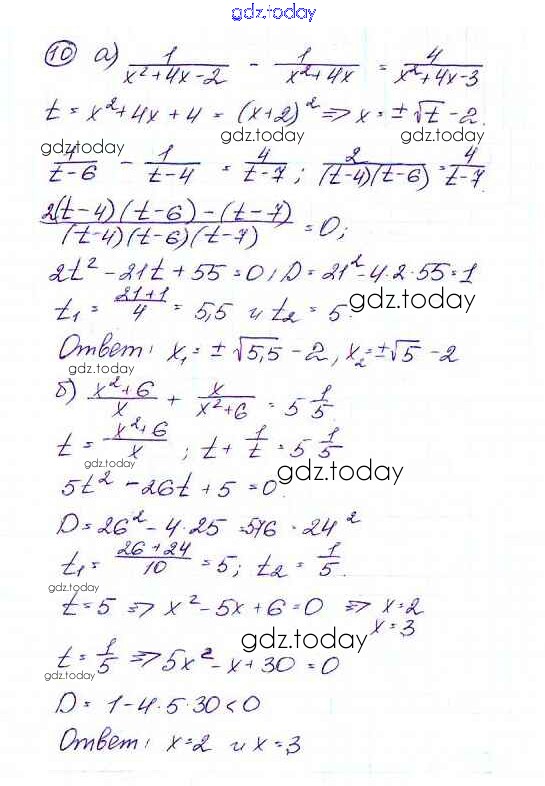 gdz.today
10 а) 1/(x²+4x-2) - 1/(x²+4x) = 4/(x²+4x-3)
t = x²+4x+4 = (x+2)² => x = ±√t - 2.
gdz.today gdz.today
4/(t-6) - 1/(t-4) = 4/(t-7); 2/((t-4)(t-6)) = 4/(t-7).
gdz.today
(2(t-4)(t-6)-(t-7))/((t-4)(t-6)(t-7)) = 0;
2t² - 21t + 55 = 0; D = 21² - 4·2·55 = 1
t₁ = (21+1)/4 = 5,5 и t₂ = 5.
gdz.today
Ответ: x₁ = ±√5,5 - 2, x₂ = ±√5 - 2
б) (x²+6)/x + x/(x²+6) = 5 1/5.
t = (x²+6)/x; t + 1/t = 5 1/5
gdz.today gdz.today
5t² - 26t + 5 = 0.
D = 26² - 4·25 = 576 = 24²
t₁ = (26+24)/10 = 5; t₂ = 1/5.
gdz.today
t = 5 => x² - 5x + 6 = 0 => x = 2
x = 3
gdz.today
t = 1/5 => 5x² - x + 30 = 0
gdz.today
D = 1 - 4·5·30 < 0
Ответ: x = 2 и x = 3